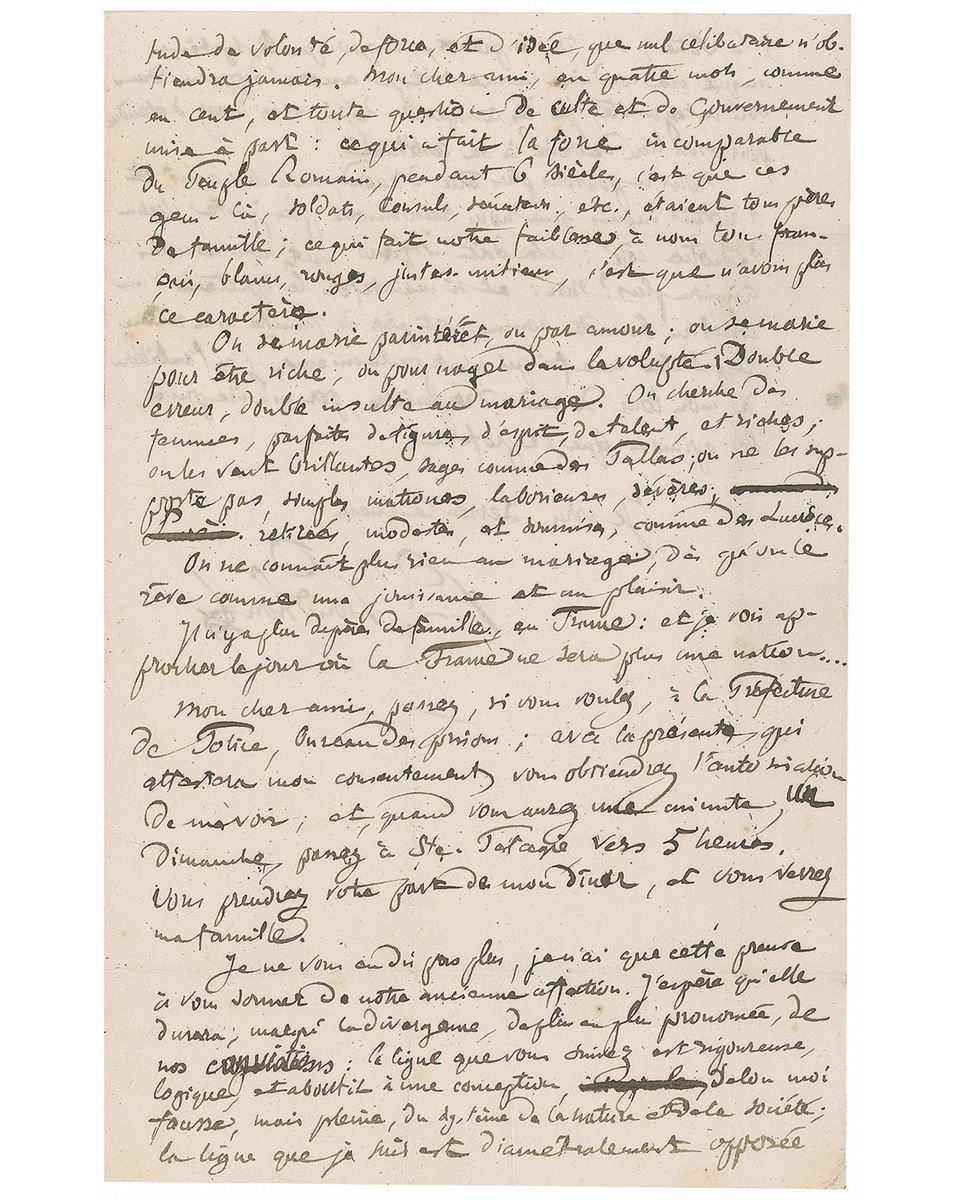 tude de volonté, de force, et d'idée, que nul célibataire n'ob-
tiendra jamais. Mon cher ami, en quatre mots, comme
en cent, et toute question de culte et de Gouvernement
mise à part : ce qui a fait la force incomparable
du Peuple Romain, pendant 6 siècles, c'est que ces
gens-là, soldats, consuls, sénateurs, etc., étaient tous pères
de famille ; ce qui fait notre faiblesse, à nous tous fran-
çais, blancs, rouges, justes-milieux, c'est que n'avons plus
ce caractère.
On se marie par intérêt, ou par amour ; on se marie
pour être riche, ou pour nager dans la volupté. Double
erreur, double insulte au mariage. On cherche des
femmes, parfaites de figure, d'esprit, de talent, et riches ;
on les veut brillantes, sages comme des Pallas ; on ne les sup-
porte pas, simples matrones, laborieuses, sévères,
retirées, modestes, et soumises, comme des Lucrèces.
On ne connaît plus rien au mariage, dès qu'on le
rêve comme une jouissance et un plaisir.
Il n'y a plus de pères de famille, en France : et je vois ap-
procher le jour où la France ne sera plus une nation....
Mon cher ami, passez, si vous voulez, à la Préfecture
de Police, bureau des prisons ; avec la présente, qui
attestera mon consentement, vous obtiendrez l'autorisation
de me voir ; et, quand vous aurez une minute, un
Dimanche, passez à Ste. Pélagie vers 5 heures,
vous prendrez votre part de mon dîner, et vous verrez
ma famille.
Je ne vous en dis pas plus, je n'ai que cette preuve
à vous donner de notre ancienne affection. J'espère qu'elle
durera, malgré la divergence, de plus en plus prononcée, de
nos convictions : la ligne que vous suivez est rigoureuse,
logique, et aboutit à une conception, selon moi
fausse, mais pleine, du système de la nature et de la société ;
la ligne que je suis est diamétralement opposée